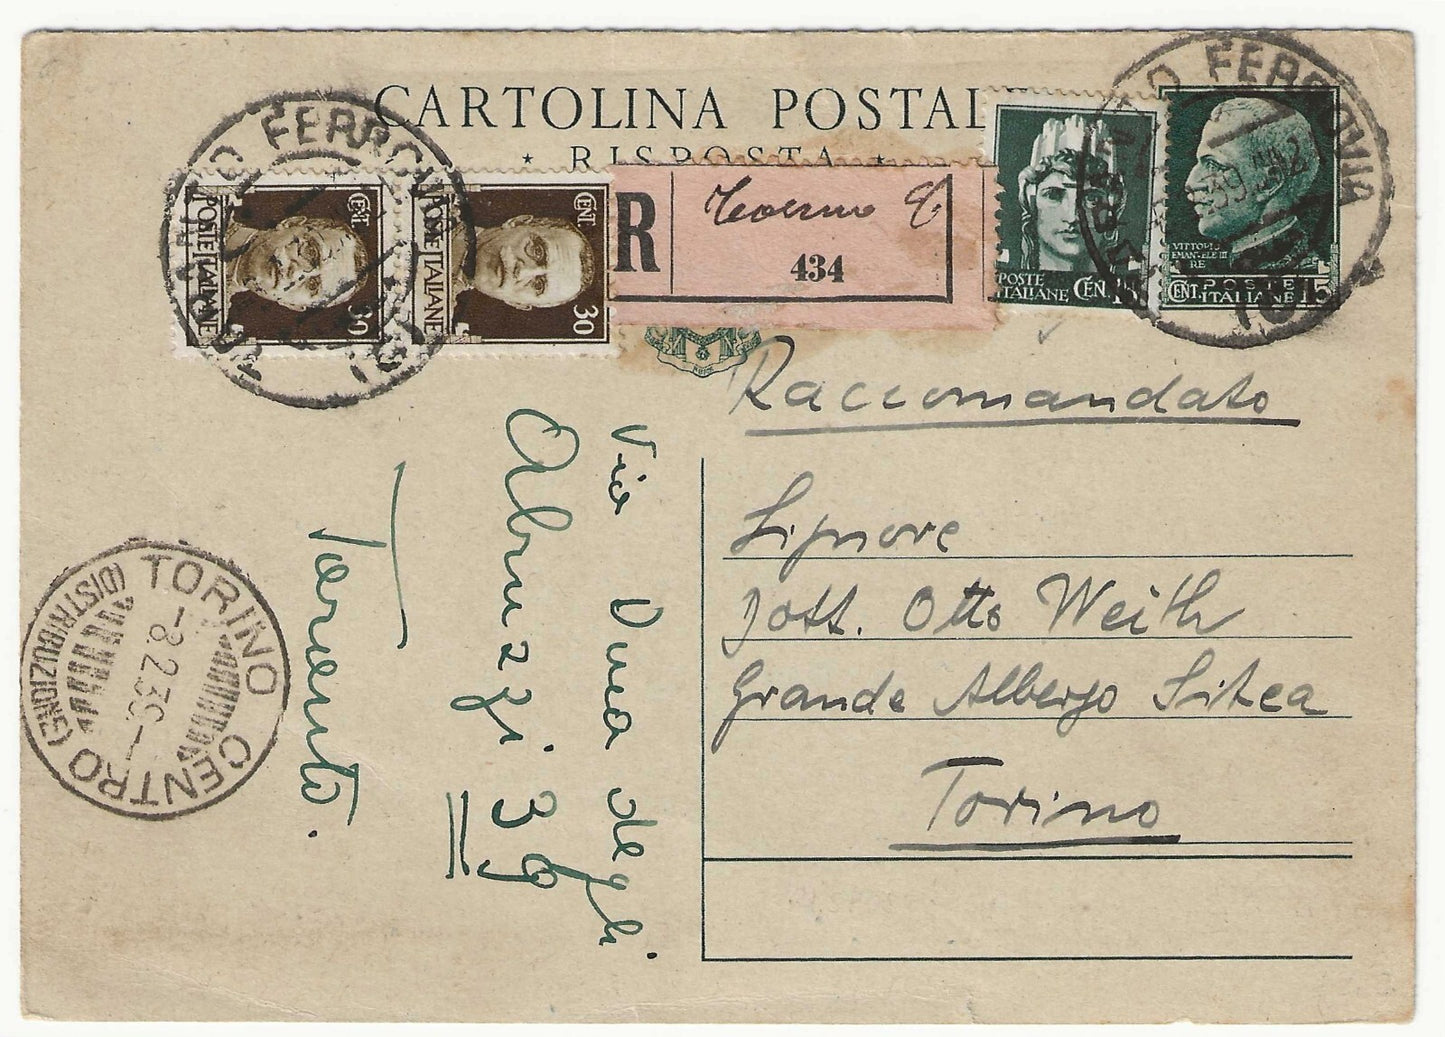 CARTOLINA POSTALE
★ RISPOSTA ★
FERROVIA
POSTE ITALIANE
CENT 30
POSTE ITALIANE
CENT 30
R
434
POSTE ITALIANE CEN. 15
FERROVIA
VITTORIO EMANUELE III RE
CENT POSTE ITALIANE 15
Raccomandato
Signore
Dott. Otto Weith
Grande Albergo Sitea
Torino
Via Duca degli
Abruzzi 39
Taranto.
TORINO CENTRO
(DISTRIBUZIONE)
-8.2.39.-